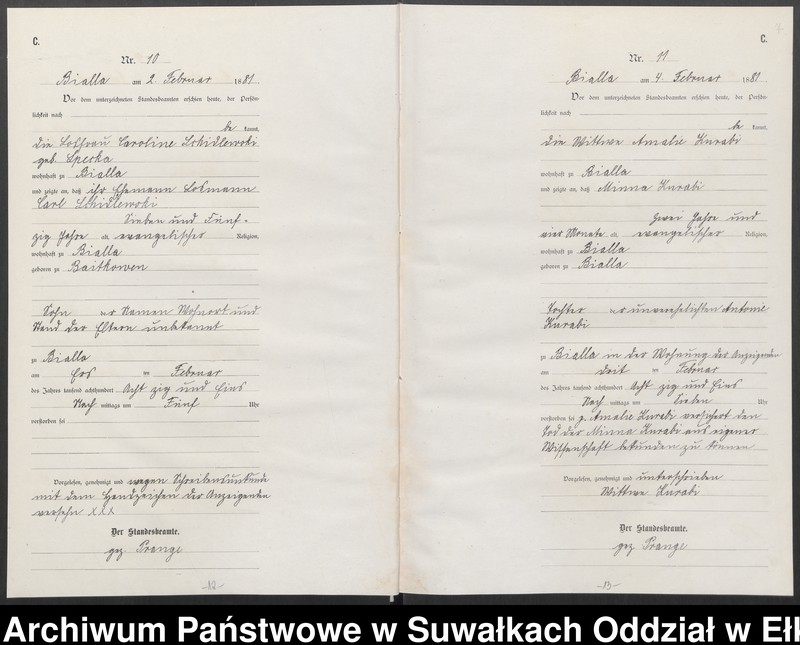 C.
Nr. 10
Bialla am 2 Februar 1881
Vor dem unterzeichneten Standesbeamten erschien heute, der Persön-
lichkeit nach
be kannt,
die Losfrau Caroline Schidlewski
geb. Sperka
wohnhaft zu Bialla
und zeigte an, daß ihr Ehemann Losmann
Carl Schidlewski
Sieben und Fünf-
zig Jahre alt, evangelischer Religion,
wohnhaft zu Bialla
geboren zu Baitkowen
Sohn er Namen Wohnort und
Stand der Eltern unbekannt
zu Bialla
am Ers ten Februar
des Jahres tausend achthundert Acht zig und Eins
Nach mittags um Fünf Uhr
verstorben sei
Vorgelesen, genehmigt und wegen Schreibensunkunde
mit dem Handzeichen der Anzeigenden
versehn XXX
Der Standesbeamte.
gez. Prange
-12-
7.
C.
Nr. 11
Bialla am 4. Februar 1881
Vor dem unterzeichneten Standesbeamten erschien heute, der Persön-
lichkeit nach
be kannt,
die Wittwe Amalie Kurabi
wohnhaft zu Bialla
und zeigte an, daß Minna Kurabi
Zwei Jahre und
vier Monate alt, evangelischer Religion,
wohnhaft zu Bialla
geboren zu Bialla
Tochter er unverehelichten Antonie
Kurabi
zu Bialla in der Wohnung der Anzeigenden
am drit ten Februar
des Jahres tausend achthundert Acht zig und Eins
Nach mittags um Sieben Uhr
verstorben sei p. Amalie Kurabi versichert den
Tod der Minna Kurabi aus eigener
Wissenschaft bekunden zu können
Vorgelesen, genehmigt und unterschrieben
Wittwe Kurabi
Der Standesbeamte.
gez Prange
-13-
Archiwum Państwowe w Suwałkach Oddział w Ełk